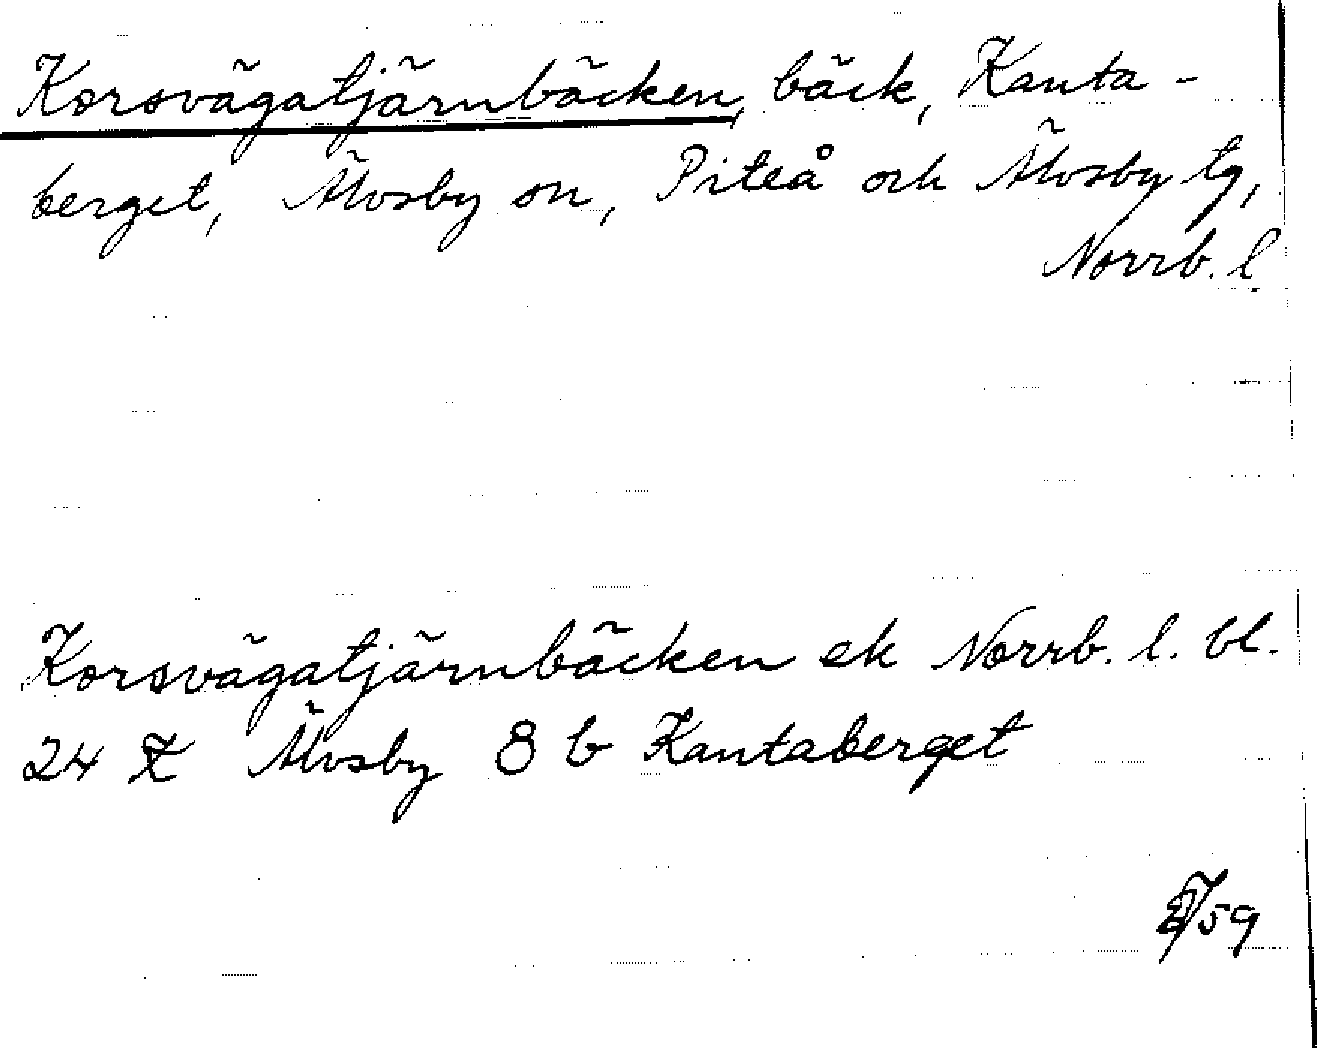 Korsvägatjärnbäcken, bäck, Kanta-
berget, Älvsby sn, Piteå och Älvsby tg,
Norrb. l
Korsvägatjärnbäcken ek Norrb. l. bl.
24 Z Älvsby 8 b Kantaberget
59